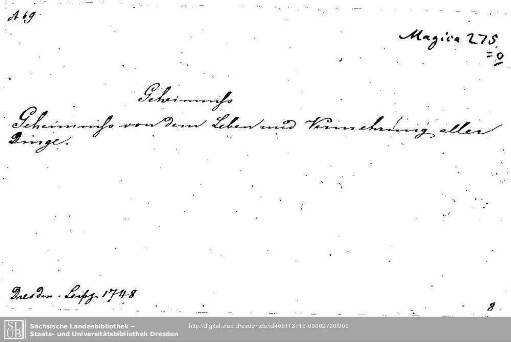 A 49
Magica 275
= 0
Geheimniss
Geheimniss von dem Leben und Vermehrung aller
Dinge.
Dresden - Leipz. 1748
8
Sächsische Landesbibliothek –
Staats- und Universitätsbibliothek Dresden